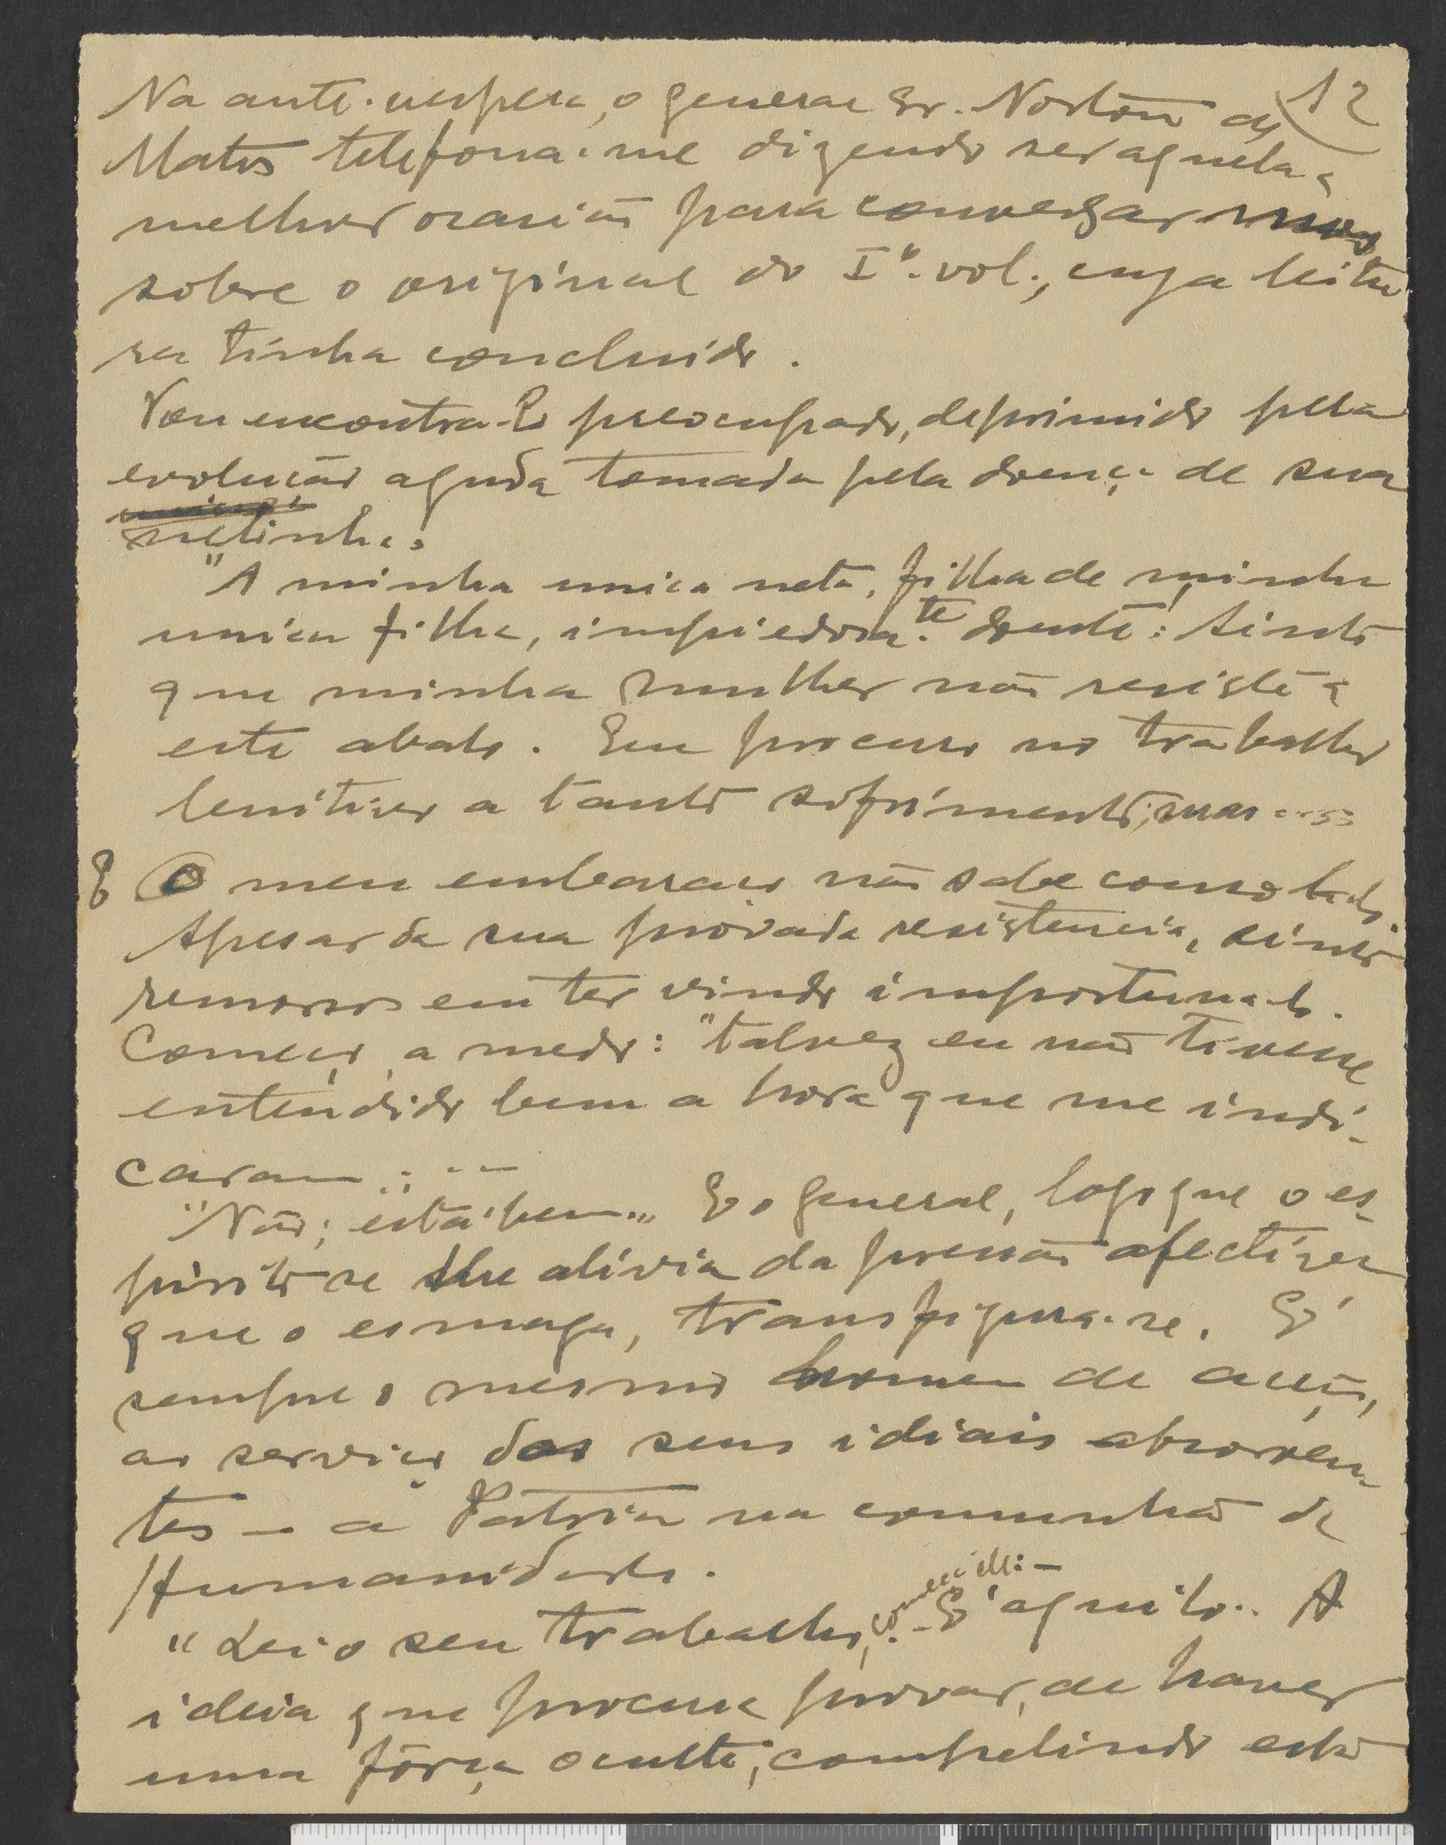 12
Na ante-vespera, o general Sr. Norton de
Matos telefona-me dizendo ser aquela a
melhor ocasião para conversarmos
sobre o original do Iº. vol., cuja leitu
ra tinha concluido.
Vou encontra-lo preocupado, deprimido pela
evolução aguda tomada pela doença de sua
netinha.
"A minha unica neta, filha de minha
unica filha, impiedosa.te doente! Sinto
que minha mulher não resiste a
este abalo. Eu procuro no trabalho
lenitivo a tanto sofrimento, mas ....
O meu embaraço não sabe como
Apesar da sua provada resistencia, sinto
remorsos em ter vindo importuna-lo.
Começo, a medo: "talvez eu não tivesse
entendido bem a hora que me indi-
caram...
"Não; está bem". E o general, logo que o es-
pirito se lhe alivia da pressão afectiva
que o esmaga, transfigura-se. E'
sempre o mesmo homem de acção,
ao serviço dos seus idiais absorven-
tes - a Patria na comunhão da
Humanidade.
"Lei o seu trabalho, - E' aquilo.. A
ideia que procura provar, de haver
uma fôrça oculta, compelindo esta